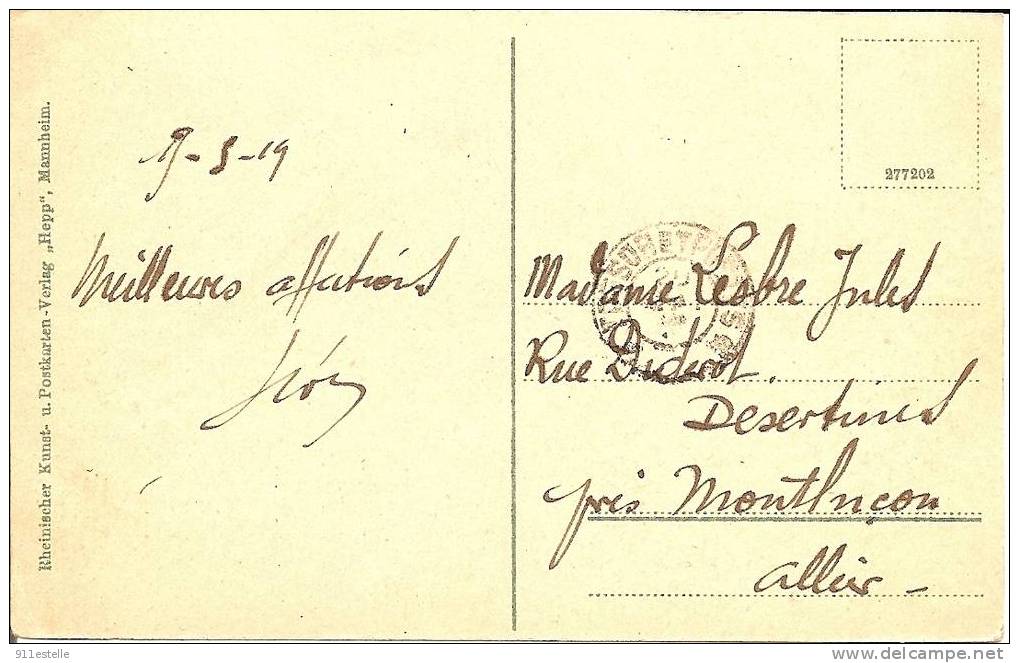 Rheinischer Kunst- u. Postkarten-Verlag „Hepp“, Mannheim.
19-5-19
Meilleures affections
277202
Madame Lesbre Jules
Rue Diderot.
Desertines
près Montluçon
Allier -
911estelle
delcampe.net